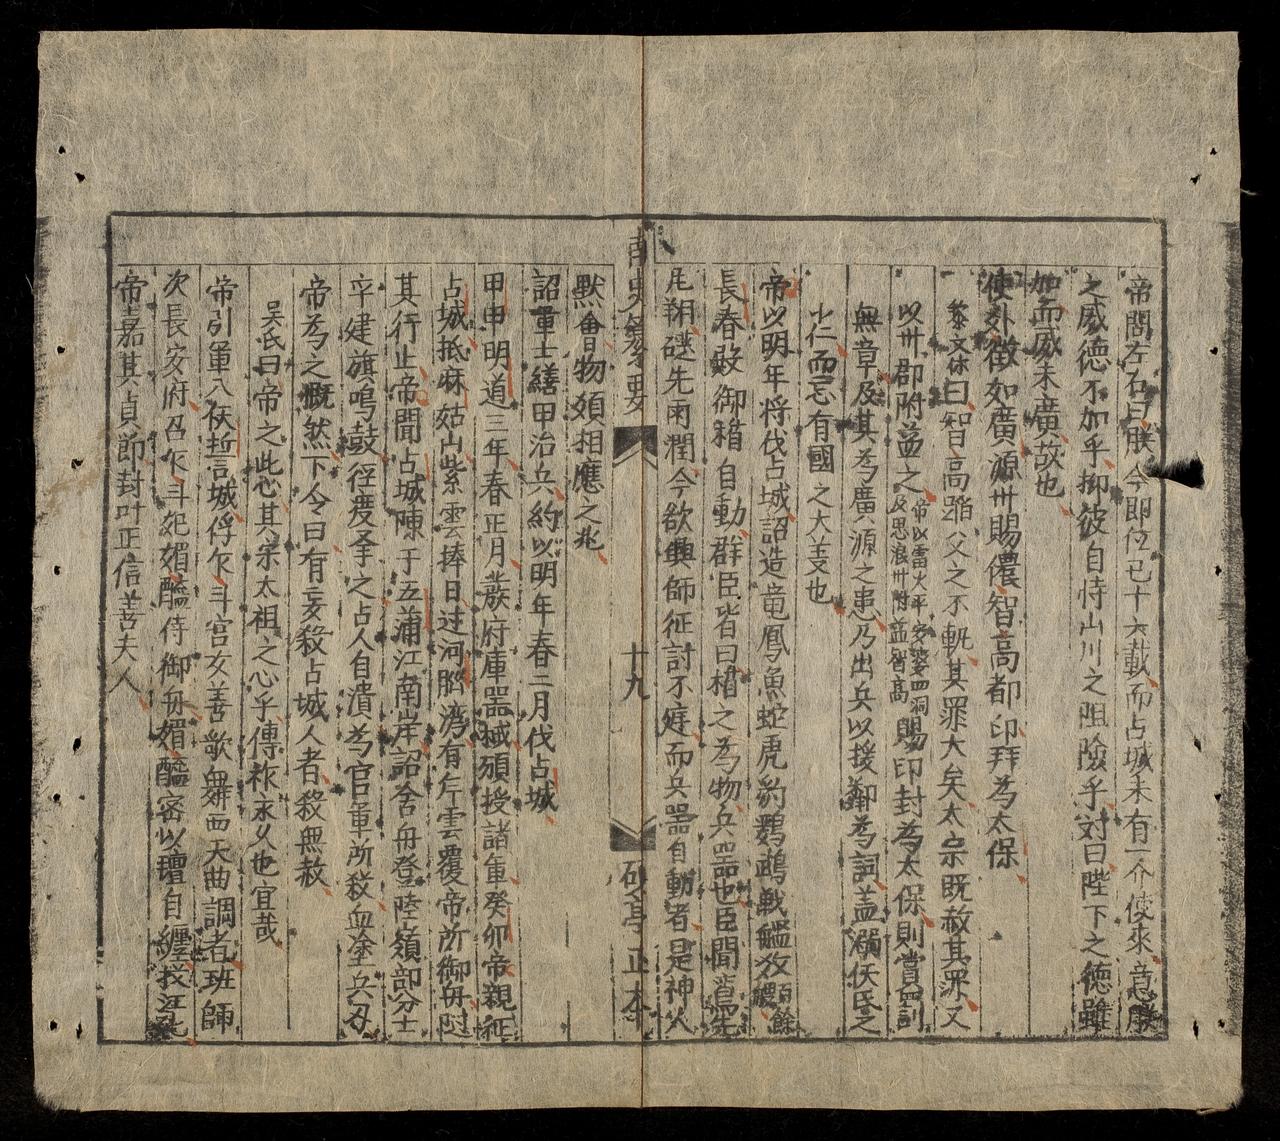 帝問左右曰朕今即位已十六載而占城未有一介使來意朕
之威德不加乎抑彼自恃山川之阻險乎対曰陛下之德雖
加而威未廣故也
使外徵如廣源州賜儂智高都印拜為太保
黎文休曰智高蹈父之不軌其罪大矣太宗既赦其罪又
以卅郡附益之帝以雷火平安婆四洞及思浪卅附益智高賜印封為太保則賞罰
無章及其為廣源之患乃出兵以援鄰為詞盖溺伏氏之
小仁而忘有國之大義也
帝以明年将伐占城詔造竜鳳魚蛇虎豹鸚鵡戦艦數百餘艘
長春殿御榻自動群臣皆曰榻之為物兵器也臣聞
尾翔礎先雨潤今欲興師征討不庭而兵器自動者是神人
默會物類相應之兆
詔軍士繕甲治兵約以明年春二月伐占城
甲申明道三年春正月發府庫器械頒授諸軍癸卯帝親征
占城抵麻姑山紫雲捧日过河腦湾有片雲覆帝所御舟随
其行止帝聞占城陳于五蒲江南岸詔舍舟登陸嶺部分士
卒建旗鳴鼓徑度季之占人自潰為官軍所殺血塗兵刃
帝為之慨然下令曰有妄殺占城人者殺無赦
吴氏曰帝之此心其宋太祖之心乎傳祚永久也宜哉
帝引軍入佚誓言城俘乍斗宮女善歌舞西天曲調者班師
次長安府召乍斗妃媚醯侍御舟媚醯密以氊自纏投江死
帝嘉其貞節封叶正信善夫人
南史纂要
十九
硯亭正本